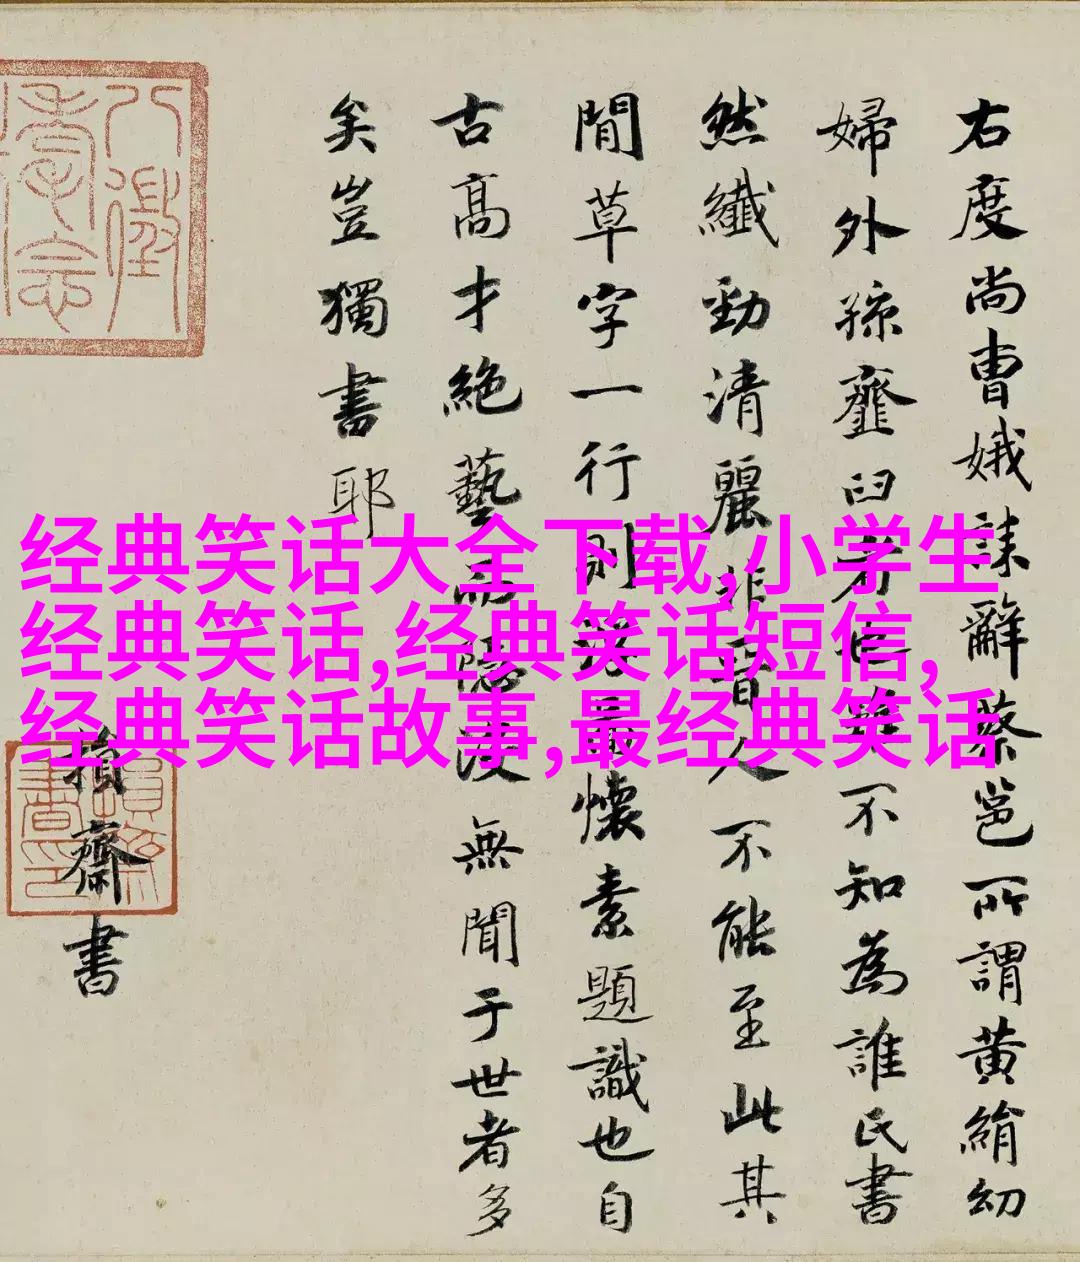 右度尚曹娥誄辭蔡邕所謂黃絹幼
婦外孫韲臼者雖不知為誰氏書
然纖勁清麗非晉人不能至此其
閒草字一行則懷素題識也自
古高才絕藝而隱沒無聞于世者多
矣豈獨書耶
損齋書
经典笑话大全下载,小学生
经典笑话,经典笑话短信,
经典笑话故事,最经典笑话